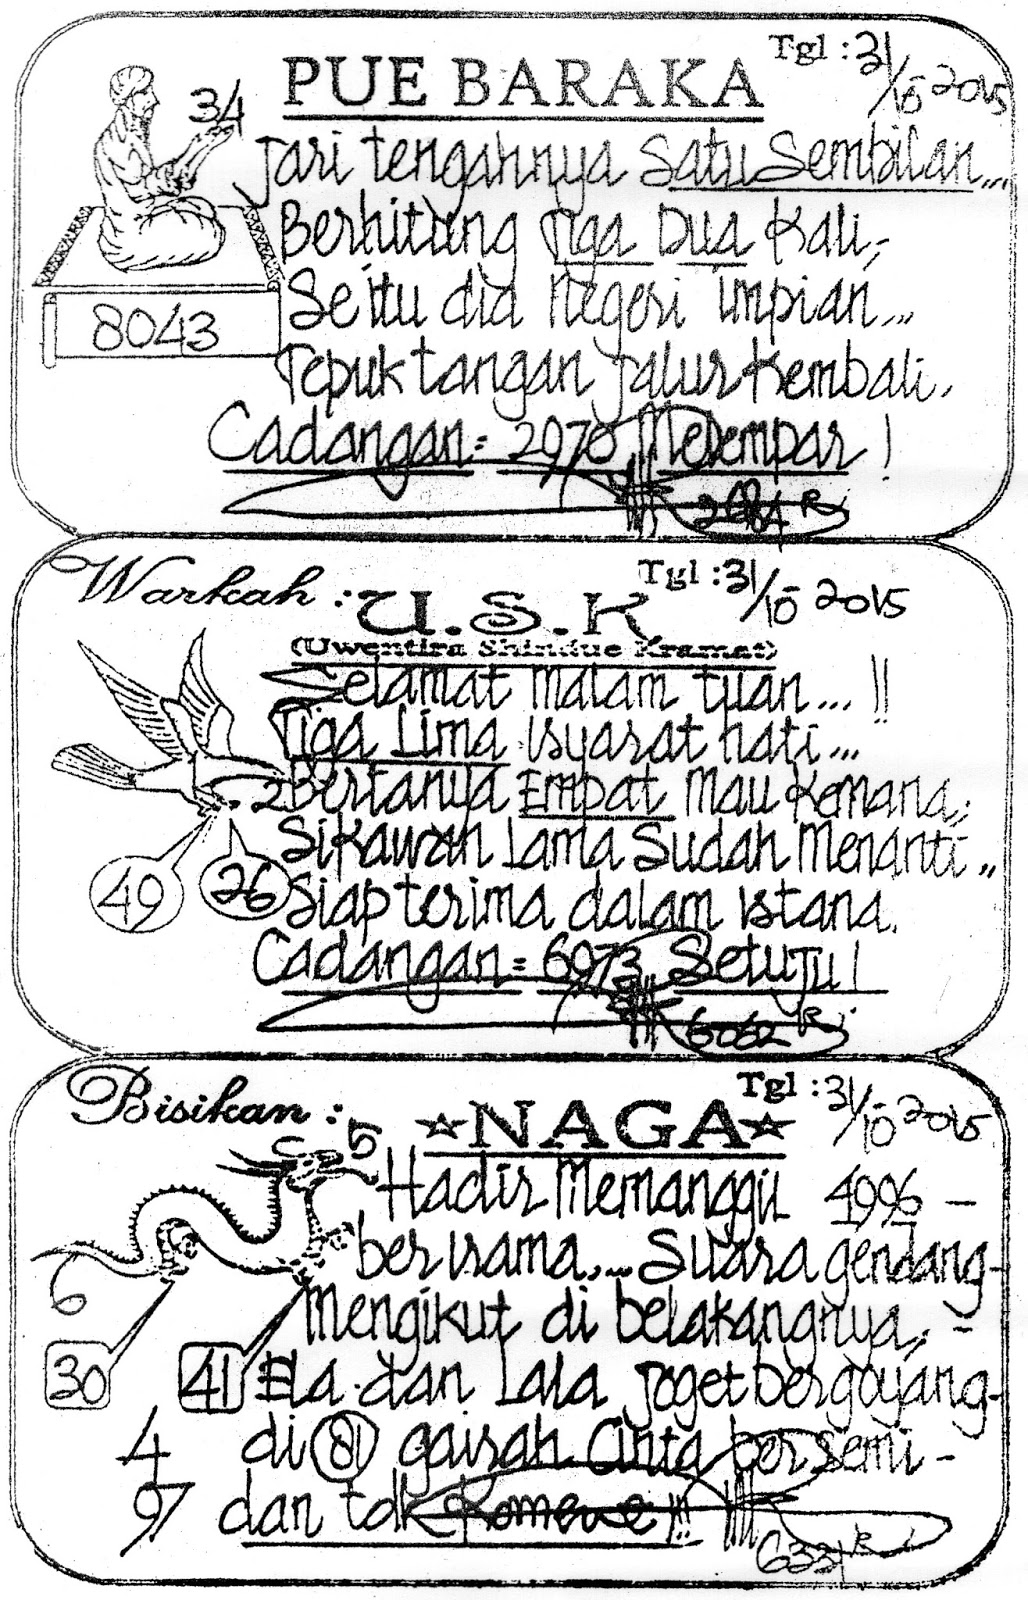 PUE BARAKA
Tgl : 31/10-2015
34
Jari tengahnya Satu Sembilan...
Berhitung Tiga Dua Kali,-
Seitu dia Negeri impian...
8043
Tepuk tangan jalur Kembali.
Cadangan = 2970 Melempar !
Warkah : U.S.K
Tgl : 31/10-2015
(Uwentira Shindue Kramat)
Selamat Malam tuan... !!
Tiga Lima Isyarat hati...
2
Bertanya Empat Mau Kemana,
Sikawan Lama Sudah Menanti..
49 26
Siap terima dalam Istana.
Cadangan = 6973 Setuju !
6062 R
Bisikan : ☆NAGA☆
Tgl : 31/10-2015
5
Hadir Memanggil 4996 -
berirama... Suara gendang-
6
Mengikut di belakangnya, -
30 41
Ela dan Lala joget bergoyang-
4
di 81 gairah Cinta bersemi -
97
dan tdk Komewe !!!
6331 R